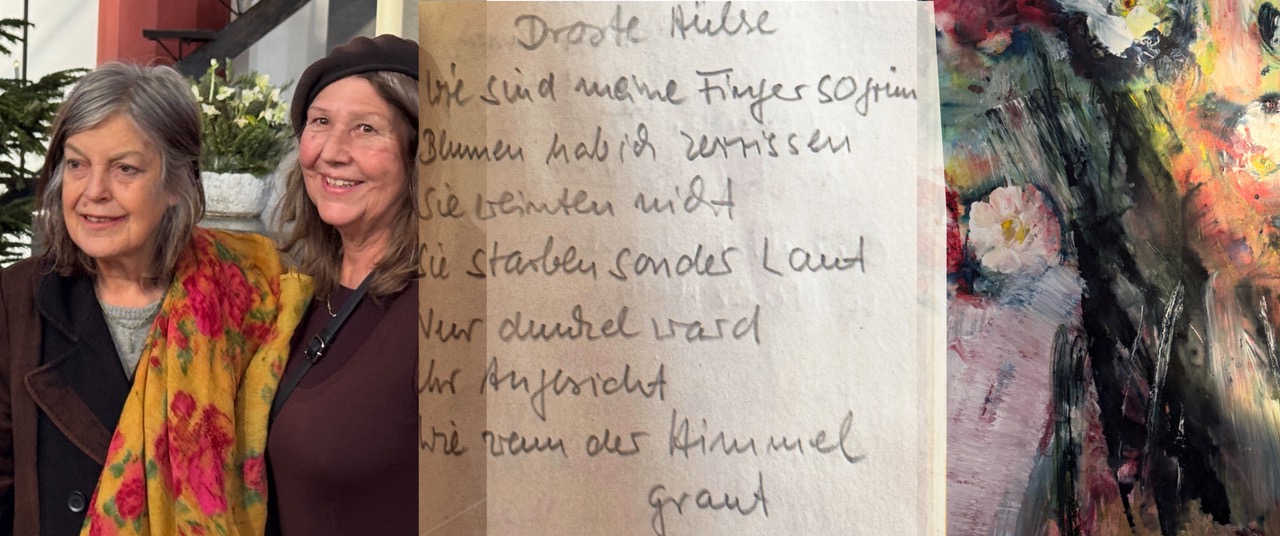 Droste Hülse
Wie sind meine Finger so grün
Blumen hab ich zerrissen
Sie weinten nicht
Sie starben sonder Laut
Nur dunkel ward
Ihr Angesicht
Wie wenn der Himmel
graut